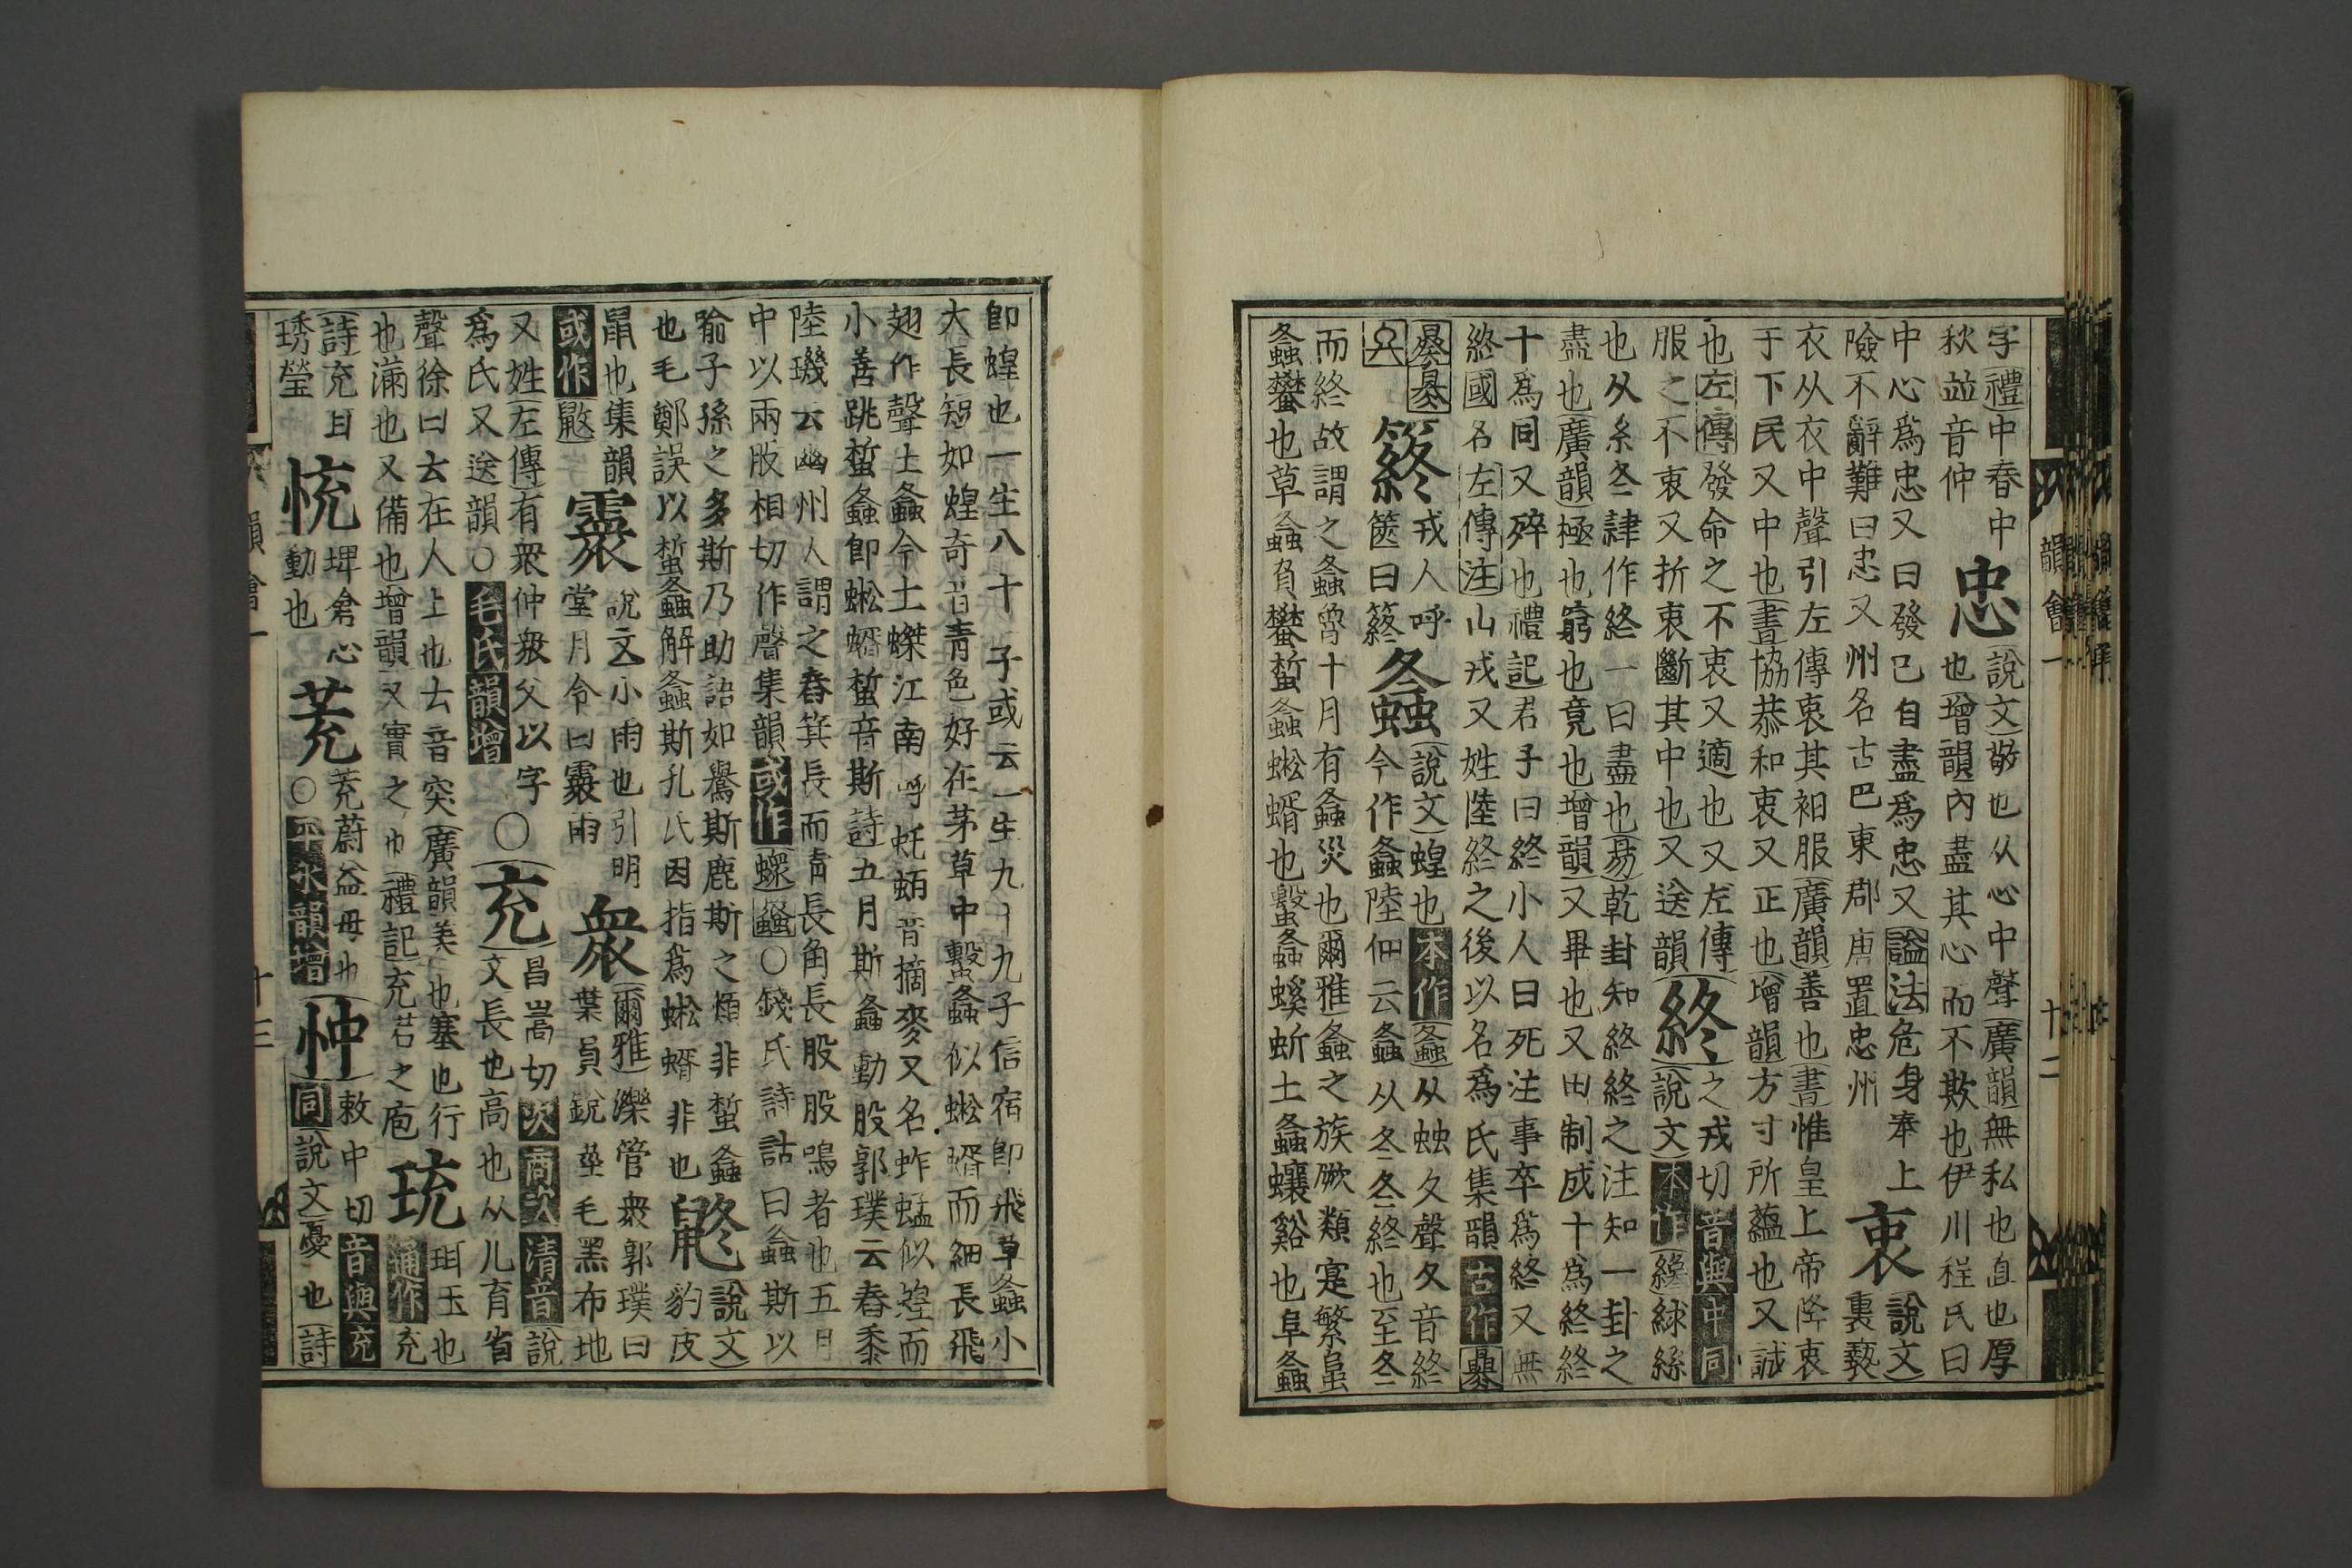 字禮中春中
秋並音仲
忠
說文敬也从心中聲廣韻無私也直也厚
也增韻內盡其心而不欺也伊川程氏曰
中心爲忠又曰發己自盡爲忠又諡法危身奉上
險不辭難曰忠又州名古巴東郡唐置忠州
衷
說文
裏褻
衣从衣中聲引左傳衷其衵服廣韻善也書惟皇上帝降衷
于下民又中也書協恭和衷又正也增韻方寸所蘊也又誠
也左傳發命之不衷又適也又左傳
服之不衷又折衷斷其中也又送韻
終
之戎切音與中同
說文本作終絿絲
也从糸冬隷作終一曰盡也昜乾卦知終終之注知一卦之
盡也廣韻極也窮也竟也增韻又畢也又田制成十爲終終
十爲同又殍也禮記君子曰終小人曰死注事卒爲終又無
終國名左傳注山戎又姓陸終之後以名爲氏集韻古作
螽
戎人呼
篋曰䈺
螽
說文蝗也本作螽从䖵夂聲夂音終
今作螽陸佃云螽从冬冬終也至冬
而終故謂之螽魯十月有螽災也爾雅螽之族厥類寔繁𨸏
螽蠜也草螽負蠜蜤螽蜙蝑也蟿螽螇蚸土螽蠰谿也阜螽
卽蝗也一生八十一子或云一生九十九子信宿卽飛草螽小
大長短如蝗奇音青色好在茅草中蟿螽似蜙蝑而細長飛
翅作聲土螽今土蠂江南呼虴蛨音摘麥又名蚱蜢似蝗而
小善跳蜤螽卽蜙蝑蜤音斯詩五月斯螽動股郭璞云舂黍
陸璣云幽州人謂之舂箕長而靑長角長股股鳴者也五月
中以兩股相切作聲集韻或作螺䗥○錢氏詩詁曰螽斯以
喻子孫之多斯乃助語如鸒斯鹿斯之類非蜤螽
也毛鄭誤以蜤螽解螽斯孔氏因指爲蜙蝑非也
鼨
說文
豹皮
鼠也集韻
或作
霥
說文小雨也引明
堂月令曰霥雨
衆
爾雅濼管衆郭璞曰
葉員銳莖毛黑布地
又姓左傳有衆仲衆父以字
爲氏又送韻○毛氏韻增
○充
昌嵩切次商次清音說
文長也高也从儿育省
聲徐曰𠫓在人上也𠫓音突廣韻美也塞也行
也滿也又備也增韻又實之也禮記充君之庖
珫
珥玉也
通作充
詩充耳
琇瑩
㤝
埤倉心
動也
茺
茺蔚益母也
○平水韻增
忡
敕中切音與充
同說文憂也詩
韻會一
十二
韻會一
十三